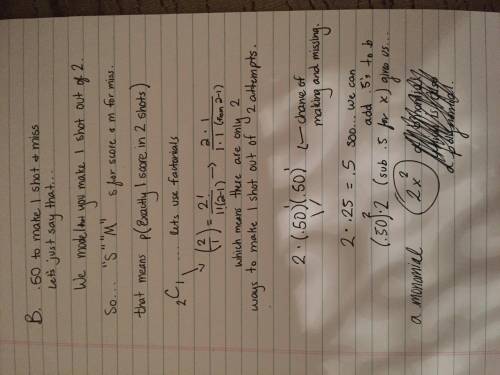 B. .50 to make 1 shot & miss
Let's just say that...
We model that you make 1 shot out of 2.
So... "S" "M" s for score & m for miss.
that means p(Exactly 1 score in 2 shots)
₂C₁ ... lets use factorials
(2/1) = 2!/1!(2-1)! → 2·1/1·1 (from 2-1)
which means there are only 2
ways to make 1 shot out of 2 attempts.
2 · (.50)(.50) ← chance of
making and missing.
2 · .25 = .5 soo... we can
add .5; to b
(.50)²·2 (sub .5 for x) gives us...
a monomial 2x²